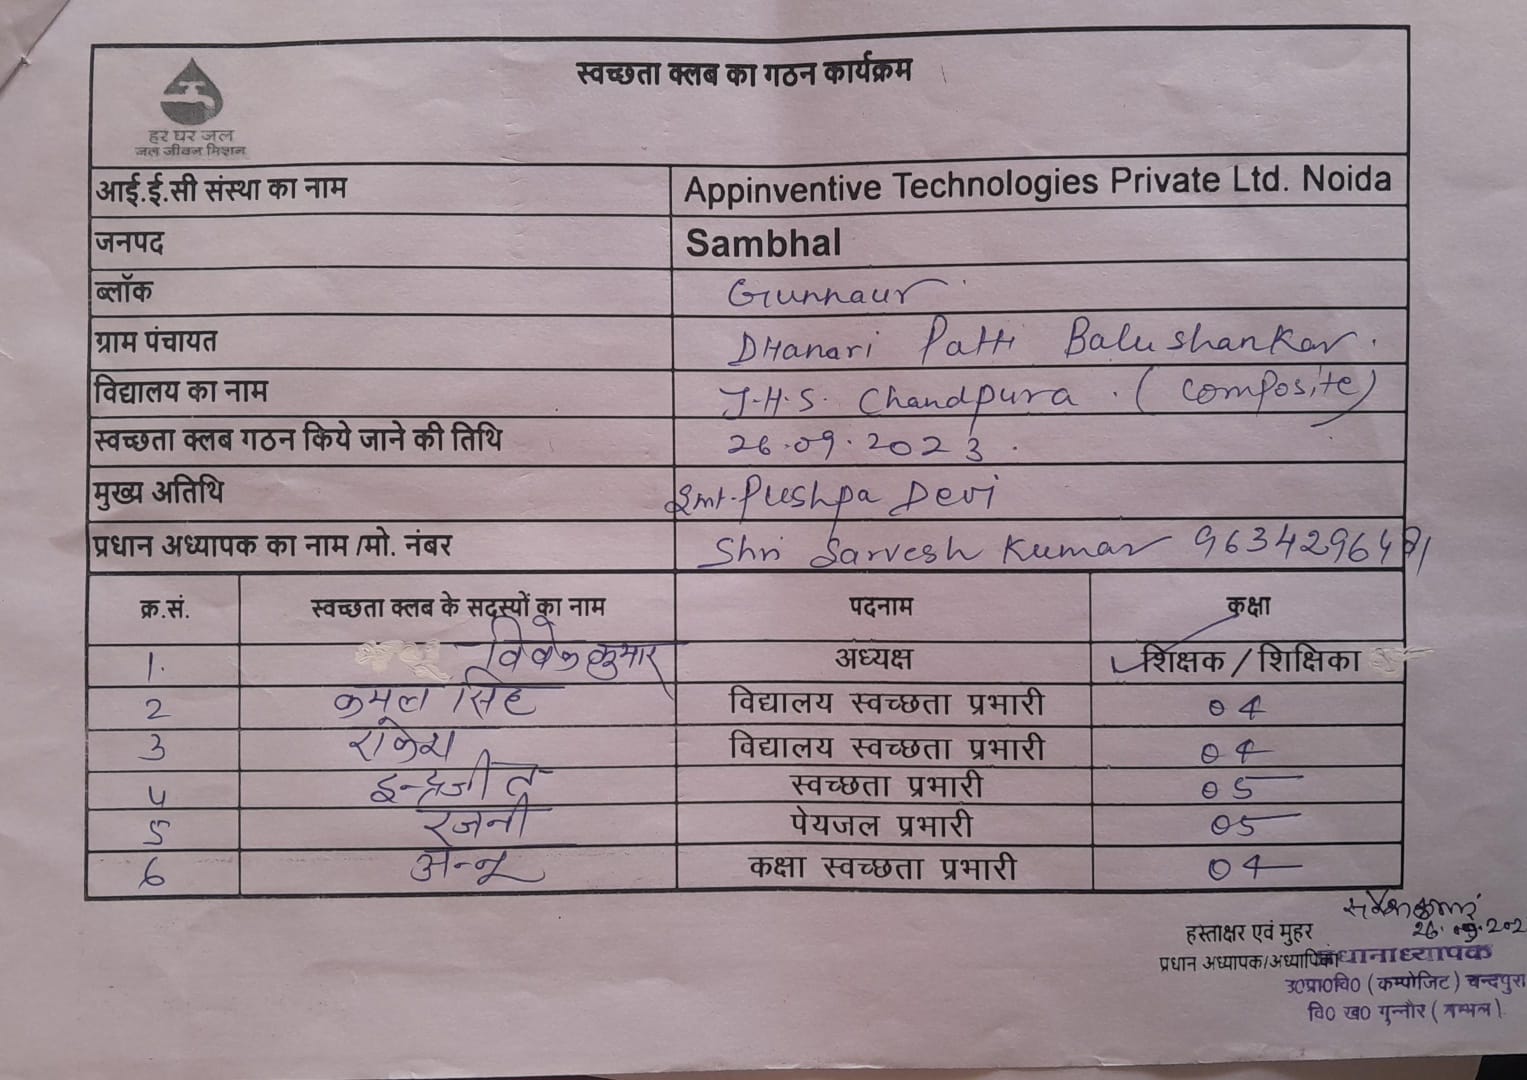 स्वच्छता क्लब का गठन कार्यक्रम
हर घर जल
जल जीवन मिशन
आई.ई.सी संस्था का नाम Appinventive Technologies Private Ltd. Noida
जनपद Sambhal
ब्लॉक Gunnaur
ग्राम पंचायत DHanari Patti Balushankar.
विद्यालय का नाम J.H.S. Chandpura. (Composite)
स्वच्छता क्लब गठन किये जाने की तिथि 26.09.2023.
मुख्य अतिथि Smt. Pushpa Devi
प्रधान अध्यापक का नाम /मो. नंबर Shri Sarvesh Kumar
क्र.सं. स्वच्छता क्लब के सदस्यों का नाम पदनाम कक्षा
1. विवेक कुमार अध्यक्ष शिक्षक / शिक्षिका
2 कमल सिंह विद्यालय स्वच्छता प्रभारी 04
3 राकेश विद्यालय स्वच्छता प्रभारी 04
4 इन्द्रजीत स्वच्छता प्रभारी 05
5 रजनी पेयजल प्रभारी 05
6 अन्नू कक्षा स्वच्छता प्रभारी 04
सर्वेश कुमार
हस्ताक्षर एवं मुहर 26.09.202
प्रधान अध्यापक/अध्यापिका प्रधानाध्यापक
उ०प्रा०वि० (कम्पोजिट) चन्दपुरा
वि० ख० गुन्नौर (सम्भल)